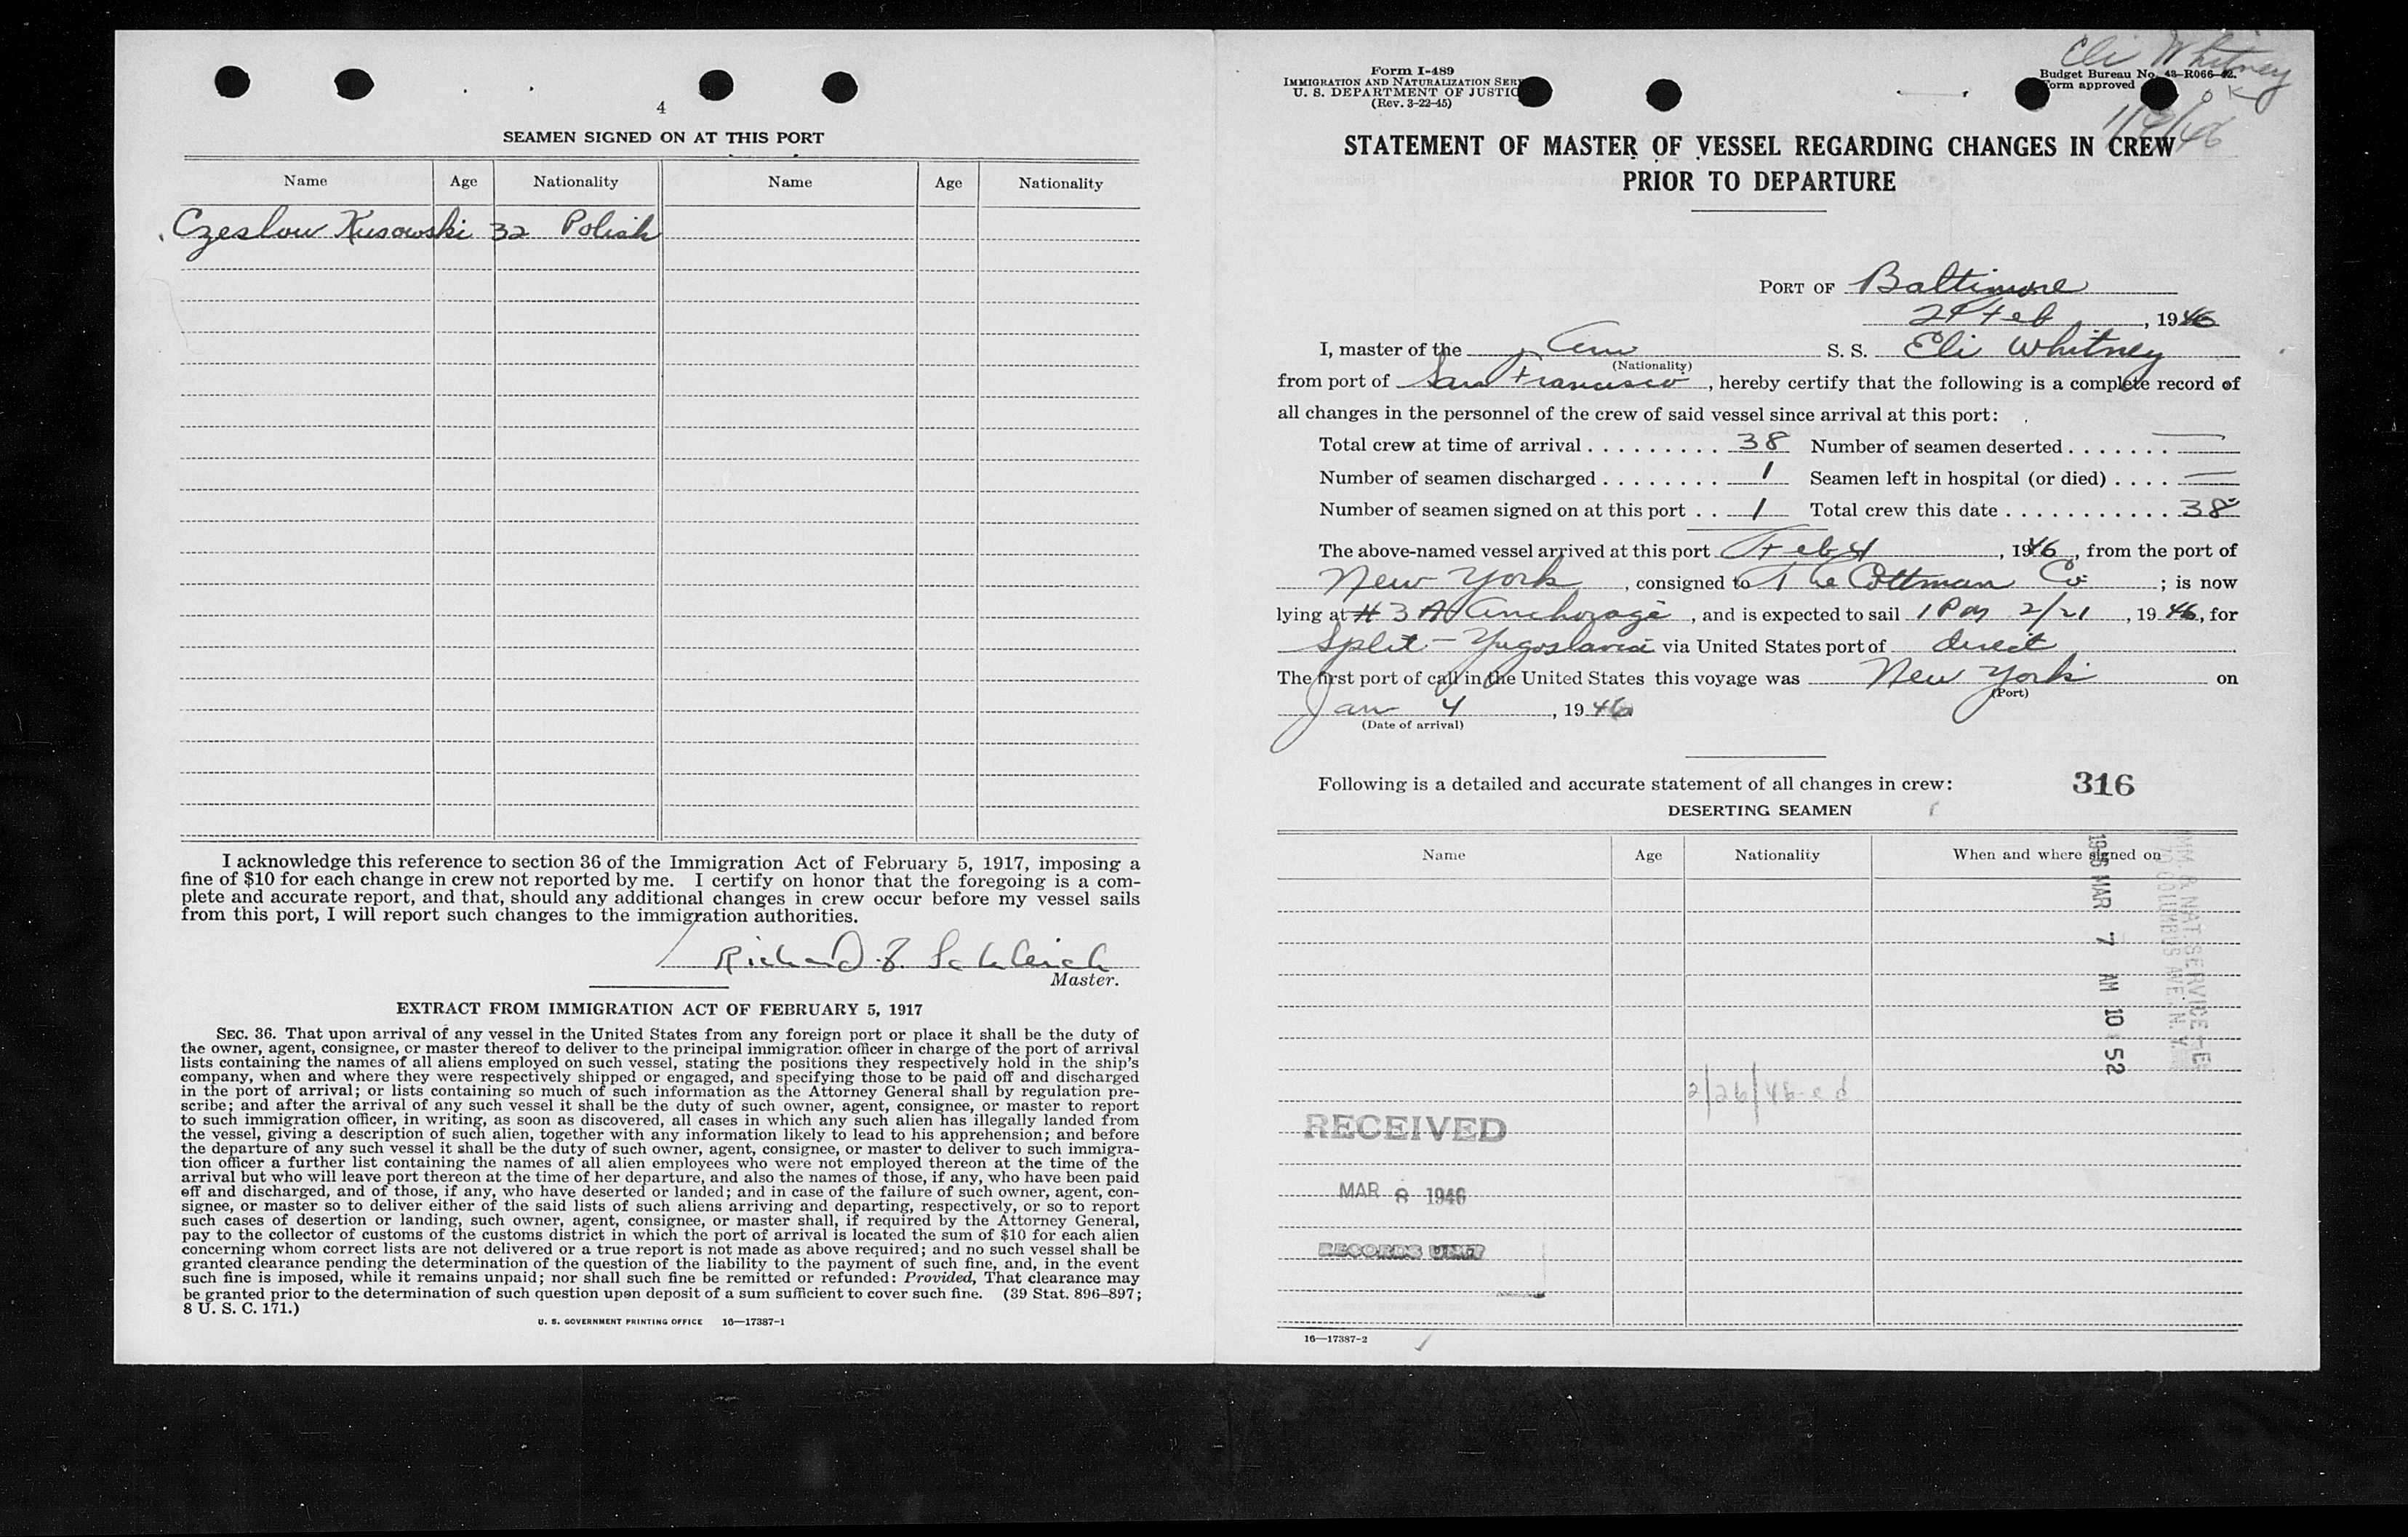 4
SEAMEN SIGNED ON AT THIS PORT
Name Age Nationality Name Age Nationality
Czeslow Kusowski 32 Polish
I acknowledge this reference to section 36 of the Immigration Act of February 5, 1917, imposing a
fine of $10 for each change in crew not reported by me. I certify on honor that the foregoing is a com-
plete and accurate report, and that, should any additional changes in crew occur before my vessel sails
from this port, I will report such changes to the immigration authorities.
Richard
Master.
EXTRACT FROM IMMIGRATION ACT OF FEBRUARY 5, 1917
SEC. 36. That upon arrival of any vessel in the United States from any foreign port or place it shall be the duty of
the owner, agent, consignee, or master thereof to deliver to the principal immigration officer in charge of the port of arrival
lists containing the names of all aliens employed on such vessel, stating the positions they respectively hold in the ship's
company, when and where they were respectively shipped or engaged, and specifying those to be paid off and discharged
in the port of arrival; or lists containing so much of such information as the Attorney General shall by regulation pre-
scribe; and after the arrival of any such vessel it shall be the duty of such owner, agent, consignee, or master to report
to such immigration officer, in writing, as soon as discovered, all cases in which any such alien has illegally landed from
the vessel, giving a description of such alien, together with any information likely to lead to his apprehension; and before
the departure of any such vessel it shall be the duty of such owner, agent, consignee, or master to deliver to such immigra-
tion officer a further list containing the names of all alien employees who were not employed thereon at the time of the
arrival but who will leave port thereon at the time of her departure, and also the names of those, if any, who have been paid
off and discharged, and of those, if any, who have deserted or landed; and in case of the failure of such owner, agent, con-
signee, or master so to deliver either of the said lists of such aliens arriving and departing, respectively, or so to report
such cases of desertion or landing, such owner, agent, consignee, or master shall, if required by the Attorney General,
pay to the collector of customs of the customs district in which the port of arrival is located the sum of $10 for each alien
concerning whom correct lists are not delivered or a true report is not made as above required; and no such vessel shall be
granted clearance pending the determination of the question of the liability to the payment of such fine, and, in the event
such fine is imposed, while it remains unpaid; nor shall such fine be remitted or refunded: Provided, That clearance may
be granted prior to the determination of such question upon deposit of a sum sufficient to cover such fine. (39 Stat. 896–897;
8 U. S. C. 171.)
U. S. GOVERNMENT PRINTING OFFICE 16—17387-1
Eli Whitney
Form I-489
IMMIGRATION AND NATURALIZATION SERV
U. S. DEPARTMENT OF JUSTIC
(Rev. 3-22-45)
Budget Bureau No. 43-R066-42.
Form approved
OK
STATEMENT OF MASTER OF VESSEL REGARDING CHANGES IN CREW
PRIOR TO DEPARTURE
PORT OF Baltimore
Feb, 1946
I, master of the Am S. S. Eli Whitney
(Nationality)
from port of San Francisco, hereby certify that the following is a complete record of
all changes in the personnel of the crew of said vessel since arrival at this port:
Total crew at time of arrival 38 Number of seamen deserted —
Number of seamen discharged 1 Seamen left in hospital (or died) —
Number of seamen signed on at this port 1 Total crew this date 38
The above-named vessel arrived at this port Feb 4, 1946, from the port of
New York, consigned to The Cottman Co; is now
lying at # 3 Anchorage, and is expected to sail 1 PM 2/21, 1946, for
Split - Yugoslavia via United States port of direct
The first port of call in the United States this voyage was New York on
(Port)
Jan 4, 1946
(Date of arrival)
Following is a detailed and accurate statement of all changes in crew: 316
DESERTING SEAMEN
Name Age Nationality When and where signed on
1946 MAR 7 AM 10 52
IMM & NAT. SERVICE
70 COLUMBUS AVE. N. Y.
2/26/46-ed
RECEIVED
MAR 8 1946
RECORDS UNIT
16—17387-2